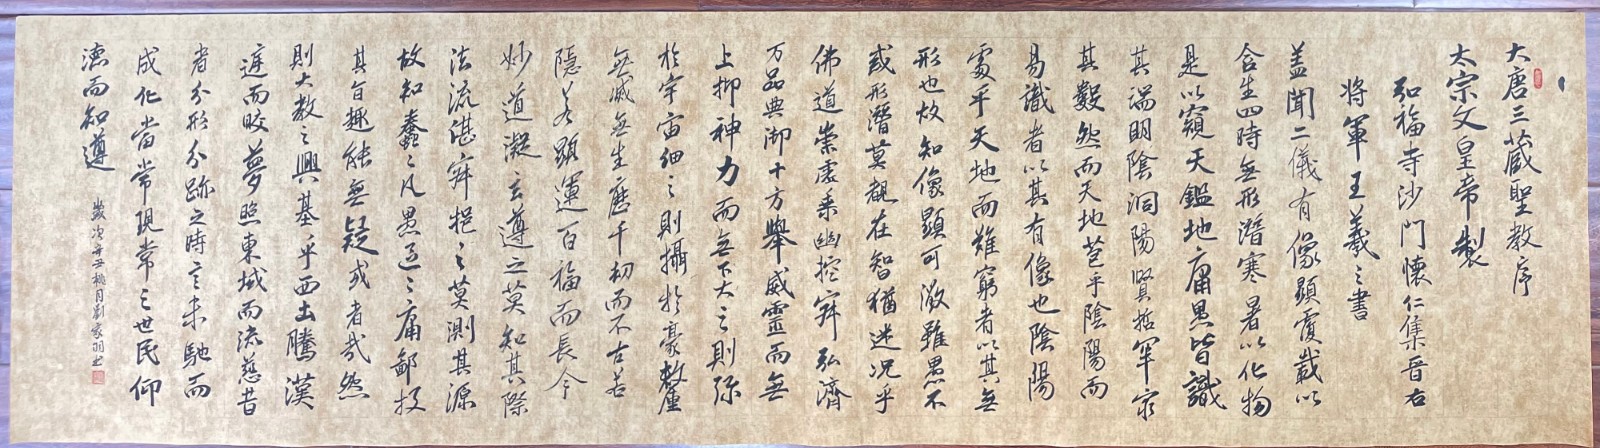 大唐三藏聖教序
太宗文皇帝製
弘福寺沙門懷仁集晉右
將軍王羲之書
盖聞二儀有像顯覆載以
含生四時無形潛寒暑以化物
是以窺天鑑地庸愚皆識
其端明陰洞陽賢哲罕窮
其數然而天地苞乎陰陽而
易識者以其有像也陰陽
處乎天地而難窮者以其無
形也故知像顯可徵雖愚不
或形潛莫覩在智猶迷况乎
佛道崇虛乘幽控寂弘濟
万品典御十方舉威靈而無
上抑神力而無下大之則弥
於宇宙細之則攝於豪釐
無滅無生歷千劫而不古若
隱若顯運百福而長今
妙道凝玄遵之莫知其際
法流湛寂挹之莫測其源
故知蠢々凡愚區々庸鄙投
其旨趣能無疑或者哉然
則大教之興基乎西土騰漢
庭而皎夢照東域而流慈昔
者分形分跡之時言未馳而
成化當常現常之世民仰
德而知遵
歲次辛丑桃月劉家羽書